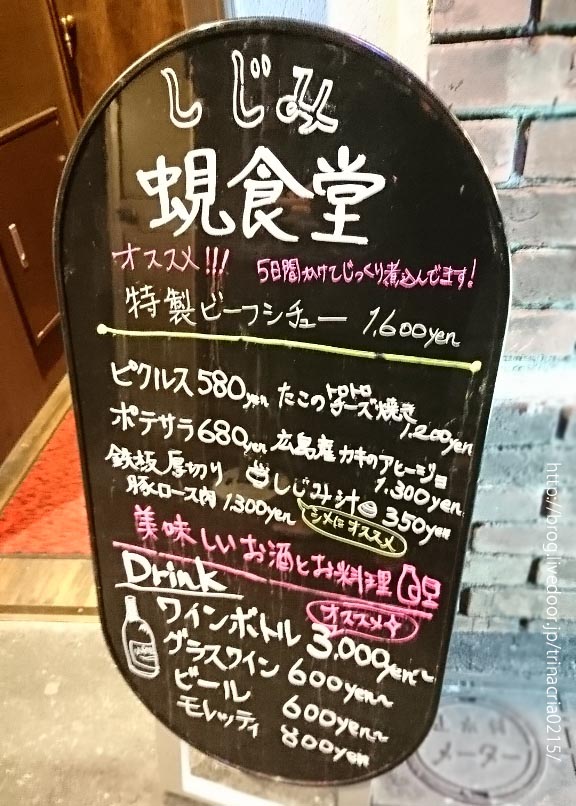 しじみ
蜆食堂
オススメ!!!
5日間かけてじっくり煮込んでます!
特製ビーフシチュー 1,600yen
ピクルス 580yen
たこのトロトロチーズ焼き
1,200yen
ポテサラ 680yen
広島産カキのアヒージョ
1,300yen
鉄板厚切り
豚ロース肉 1,300yen
しじみ汁 350yen
シメにオススメ
美味しいお酒とお料理
Drink
オススメ
ワインボトル 3,000yen~
グラスワイン 600yen~
ビール 600yen~
モレッティ 800yen
メーター
http://blog.livedoor.jp/trinacria0215/